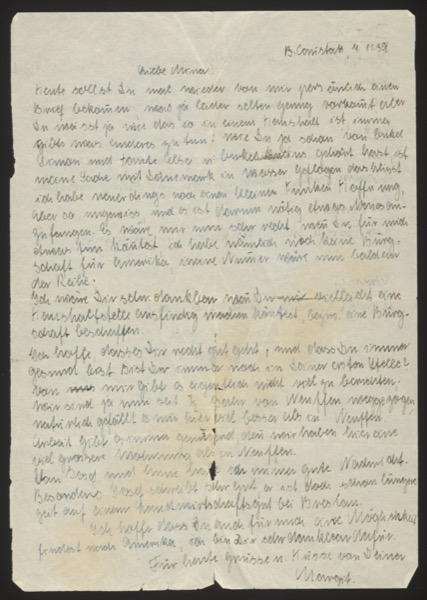 B. Cannstatt, 4. 11. 39
Liebe Mona
Heute sollst Du mal wieder von mir persönlich einen
Brief bekommen was ja leider selten genug vorkommt aber
Du weisst ja wie das so in einem Haushalt ist immer
gibts was anderes zu tun! Wie Du ja schon von Onkel
und Tante Else u. Onkel gehört hast ist
meine Sache mit Dänemark in Wasser gefallen das heisst
ich habe neuerdings noch einen kleinen Funken Hoffnung,
aber so ungewiss, und es ist darum nötig etwas Neues an-
zufangen. Es wäre mir nun sehr recht, wenn Du für mich
etwas tun könntest ich habe nämlich noch keine Bürg-
schaft für Amerika meine Numer wäre nun bald in
der Reihe.
Ich wäre Dir sehr dankbar wenn Du vielleicht eine
Haushaltstelle ausfindig machen könntest, bezw. eine Bürg-
schaft beschaffen.
Ich hoffe, dass es Dir recht gut geht, und dass Du immer
gesund bist. Bist Du immer noch in Deiner ersten Stelle?
Von mir gibt es eigentlich nicht viel zu berichten.
Wir sind ja nun seit ½ Jahr von Neuffen weggezogen,
natürlich gefällt es mir hier viel besser als in Neuffen.
Arbeit gibt es immer genügend denn wir haben hier eine
viel grössere Wohnung als in Neuffen.
Von Josef und Anne habe ich immer gute Nachricht.
Besonders Josef schreibt sehr gut er ist doch schon längere
Zeit auf einem Landwirtschaftsgut bei Breslau.
Ich hoffe dass Du auch für mich eine Möglichkeit
findest nach Amerika, ich bin Dir sehr dankbar dafür.
Für heute Grüsse u. Küsse von Deiner
Margot.